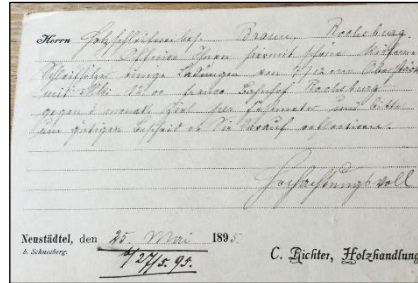 Herrn Holzschleifereibes. Braun, Rochsburg.
Offerire Ihnen hiermit schöne
Schleifhölzer einige Ladungen von 7/12 cm
mit Mk 12.00 franco Bahnhof Rochsburg
gegen 3 monats Ziel per Festmeter und bitte
um gütigen Bescheid ob Sie darauf reflectieren.
Hochachtungsvoll
Neustädtel, den 25. Mai 1895.
b. Schneeberg.
27/5. 95.
C. Richter, Holzhandlung